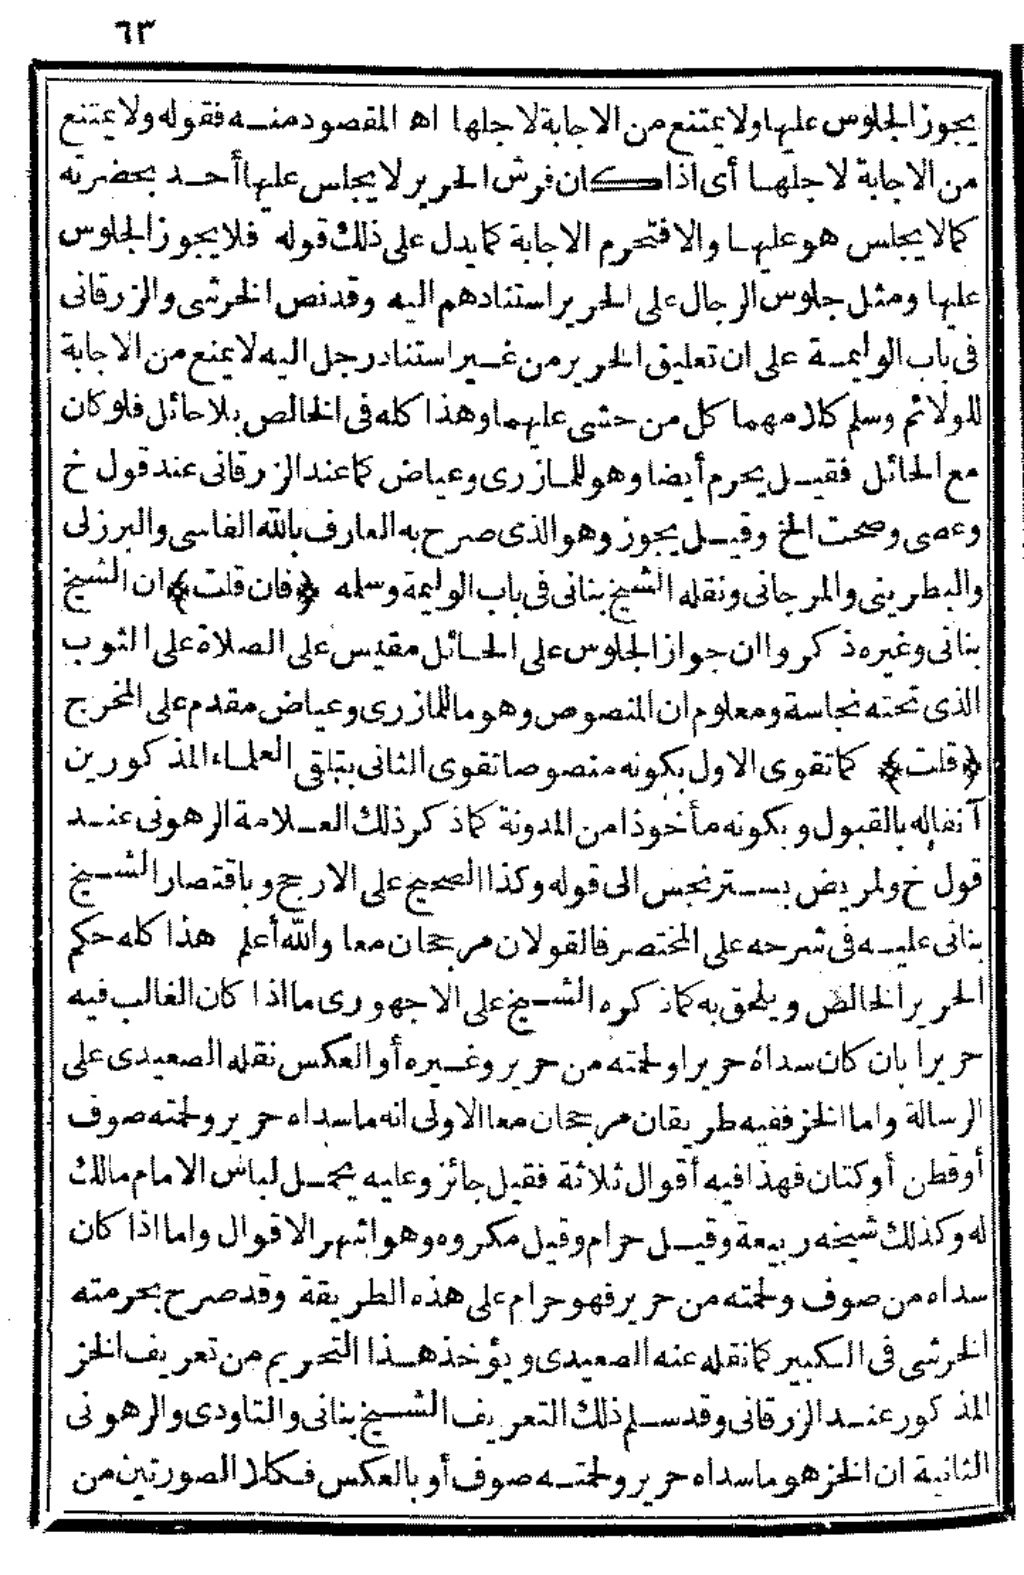 ٦٣
يجوز الجلوس عليها ولا يمتنع من الاجابة لاجلها اه المقصود منه فقوله ولا يمتنع
من الاجابة لاجلها أى اذا كان فرش الحرير لا يجلس عليها أحد بحضرته
كما لا يجلس هو عليها والا فتحرم الاجابة كما يدل على ذلك قوله فلا يجوز الجلوس
عليها ومثل جلوس الرجال على الحرير استنادهم اليه وقد نص الخرشى والزرقانى
فى باب الوليمة على ان تعليق الحرير من غير استناد رجل اليه لا يمنع من الاجابة
للولائم وسلم كلامهما كل من حشى عليهما وهذا كله فى الخالص بلا حائل فلو كان
مع الحائل فقيل يحرم أيضا وهو للمازرى وعياض كما عند الزرقانى عند قول خ
وعصى وصحت الخ وقيل يجوز وهو الذى صرح به العارف بالله الفاسى والبرزلى
والبطرينى والمرجانى ونقله الشيخ بنانى فى باب الوليمة وسلمه ﴿فان قلت﴾ ان الشيخ
بنانى وغيره ذكروا ان جواز الجلوس على الحائل مقيس على الصلاة على الثوب
الذى تحته نجاسة ومعلوم ان المنصوص وهو ما للمازرى وعياض مقدم على المخرج
﴿قلت﴾ كما تقوى الاول بكونه منصوصا تقوى الثانى بتلقى العلماء المذكورين
آنفا له بالقبول وبكونه مأخوذا من المدونة كما ذكر ذلك العلامة الرهونى عند
قول خ ولمريض بستر نجس الى قوله وكذا الصحيح على الارجح وباقتصار الشيخ
بنانى عليه فى شرحه على المختصر فالقولان مرجحان معا والله أعلم هذا كله حكم
الحرير الخالص ويلحق به كما ذكره الشيخ على الاجهورى ما اذا كان الغالب فيه
حريرا بان كان سداه حريرا ولحمته من حرير وغيره أو العكس نقله الصعيدى على
الرسالة واما الخز ففيه طريقان مرجحان معا الاولى انه ما سداه حرير ولحمته صوف
أو قطن أو كتان فهذا فيه أقوال ثلاثة فقيل جائز وعليه يحمل لباس الامام مالك
له وكذلك شيخه ربيعة وقيل حرام وقيل مكروه وهو اشهر الاقوال واما اذا كان
سداه من صوف ولحمته من حرير فهو حرام على هذه الطريقة وقد صرح بحرمته
الخرشى فى الكبير كما نقله عنه الصعيدى ويؤخذ هذا التحريم من تعريف الخز
المذكور عند الزرقانى وقد سلم ذلك التعريف الشيخ بنانى والتاودى والرهونى
الثانية ان الخز هو ما سداه حرير ولحمته صوف أو بالعكس فكلا الصورتين من